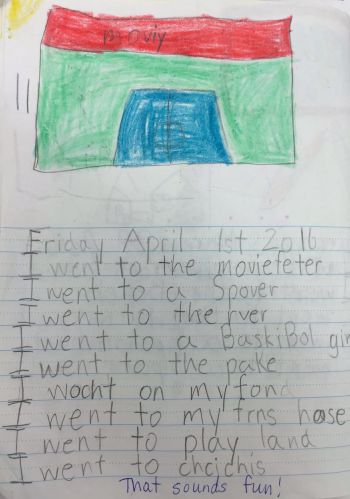 moviy
Friday April 1st 2016
I went to the movieteter
I went to a Spover
I went to the rver
I went to a BaskiBol gim
I went to the pake
I wocht on my fond
I went to my frns hose
I went to play land
I went to chcjchis
That sounds fun!